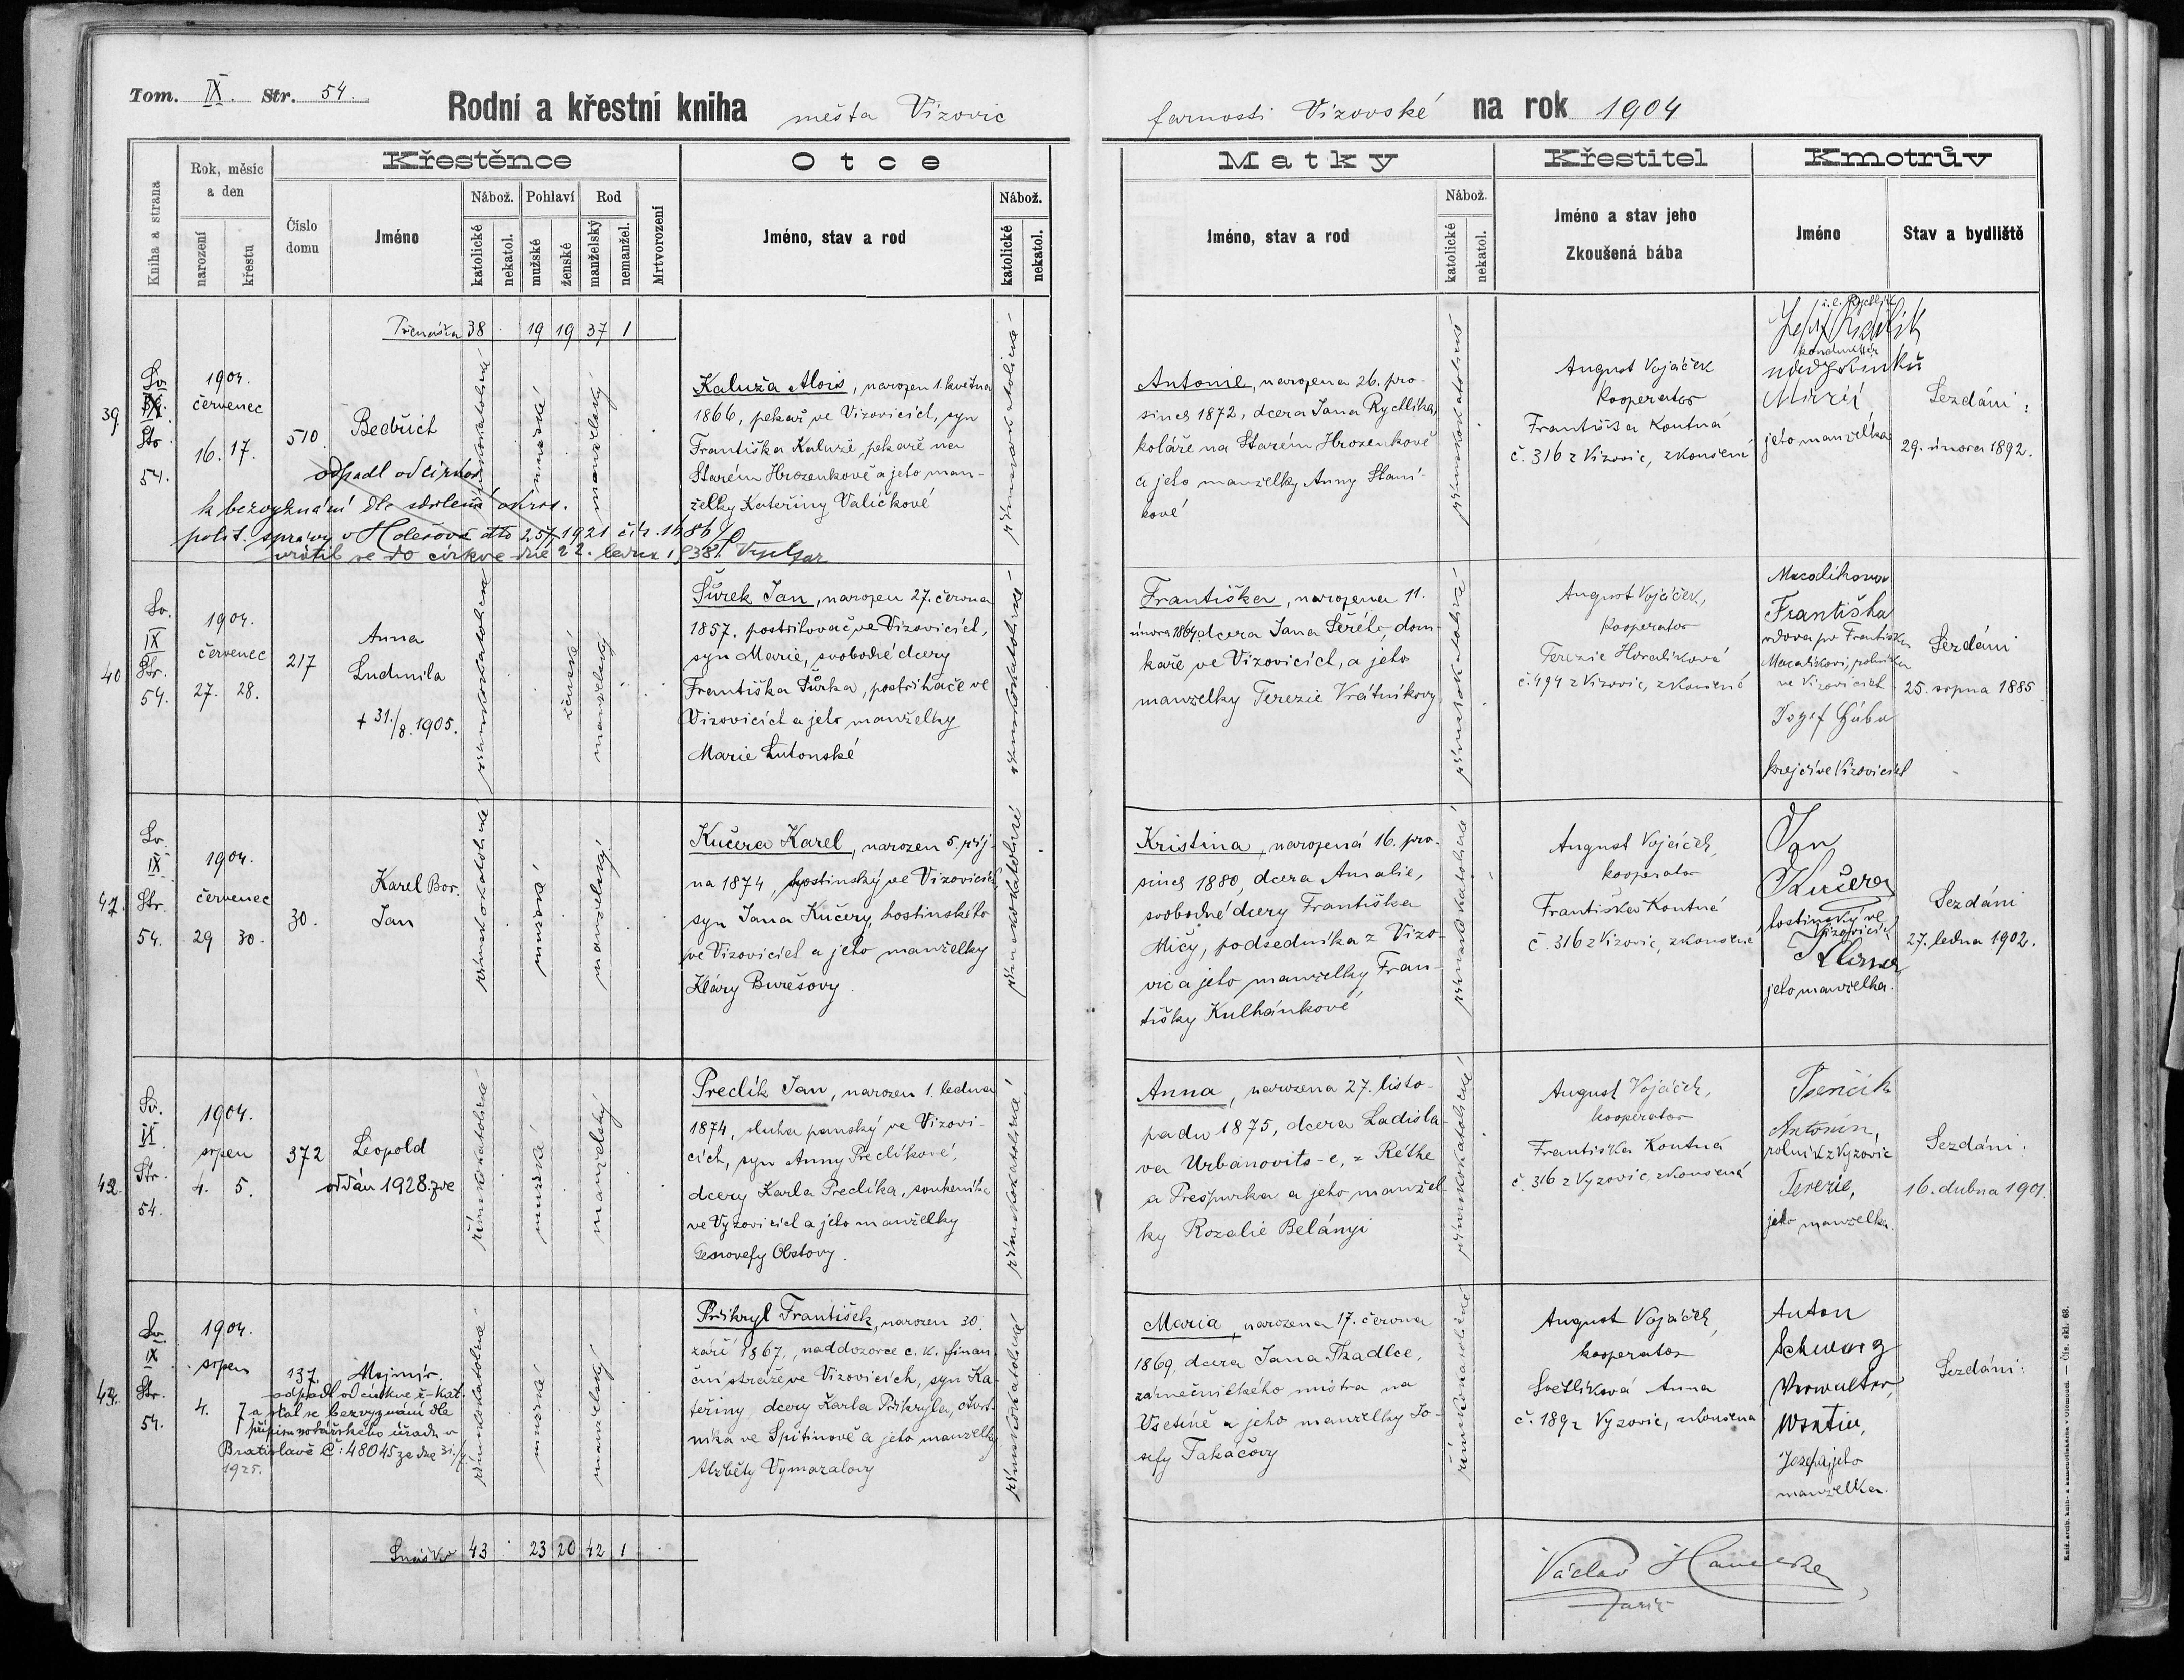 Tom. IX. Str. 54.
Rodní a křestní kniha města Vizovic
farnosti Vizovské na rok 1904
Kniha a strana
Rok, měsíc a den
narození
křestu
Číslo domu
Křestěnce
Jméno
Nábož.
katolické
nekatol.
Pohlaví
mužské
ženské
Rod
manželský
nemanžel.
Mrtvorození
Otce
Jméno, stav a rod
Nábož.
katolické
nekatol.
Matky
Jméno, stav a rod
Nábož.
katolické
nekatol.
Křestitel
Jméno a stav jeho
Zkoušená bába
Kmotrův
Jméno
Stav a bydliště
Přenáška 38 19 19 37 1
39.
Sv.
IX.
Str.
54.
1904.
červenec
16. 17.
510.
Bedřich
odpadl od církve
k bezvyznání dle sdělení okres.
polit. správy v Holešově dto 25/7 1921 čís.
vrátil se do církve dne 22. ledna 1938.
římskokatolické
mužské
manželský
Kaluža Alois, narozen 1. května
1866, pekař ve Vizovicích, syn
Františka Kaluže, pekaře na
Starém Hrozenkově a jeho man-
želky Kateřiny Valíčkové
římskokatolické
Antonie, narozena 26. pro-
since 1872, dcera Jana Rychlíka,
koláře na Starém Hrozenkově
a jeho manželky Anny Staní-
kové
římskokatolické
August Vojáček
kooperator
Františka Koutná
č. 316 z Vizovic, zkoušená
jeho manželka
Sezdáni:
29. února 1892.
40.
Sv.
IX
Str.
54.
1904.
červenec
27. 28.
217
Anna
Ludmila
+ 31./8. 1905.
římskokatolické
ženské
manželský
Šůrek Jan, narozen 27. června
1857, postřihovač ve Vizovicích,
syn Marie, svobodné dcery
Františka Šůrka, postřihače ve
Vizovicích a jeho manželky
Marie Lutonské
římskokatolické
Františka, narozena 11.
února 1864, dcera Jana Šeréto, dom-
kaře ve Vizovicích, a jeho
manželky Terezie Vrátníkovy
římskokatolické
August Vojáček,
kooperator
Terezie Horalíková
č. 494 z Vizovic, zkoušená
Macalíkova
Františka
vdova po Františku
Macalíkovi, rolníku
ve Vizovicích
Josef
krejčí ve Vizovicích
Sezdáni
25. srpna 1885
41.
Sv.
IX
Str.
54.
1904.
červenec
29 30.
30.
Karel Bor.
Jan
římskokatolické
mužské
manželský
Kučera Karel, narozen 5. říj-
na 1874, hostinský ve Vizovicích
syn Jana Kučery, hostinského
ve Vizovicích a jeho manželky
Kláry Burešovy.
římskokatolické
Kristina, narozená 16. pro-
since 1880, dcera Amalie,
svobodné dcery Františka
Mičy, podsedníka z Vizo-
vic a jeho manželky Fran-
tišky Kulhánkové
římskokatolické
August Vojáček,
kooperator
Františka Koutná
č. 316 z Vizovic, zkoušená
Jan
Kučera
hostinský ve
Vizovicích
Klara
jeho manželka.
Sezdáni
27. ledna 1902.
42.
Sv.
IX
Str.
54.
1904.
srpen
4. 5.
372
Leopold
oddán 1928.
římskokatolické
mužské
manželský
Preclík Jan, narozen 1. ledna
1874, sluha panský ve Vizovi-
cích, syn Anny Preclíkové,
dcery Karla Preclíka, soukeníka
ve Vyzovicích a jeho manželky
Genovefy Obstovy.
římskokatolické
Anna, narozena 27. listo-
padu 1875, dcera Ladisla-
va Urbanovits-e, z Réthe
a Prešpurka a jeho manžel-
ky Rozalie Belányi
římskokatolické
August Vojáček,
kooperator
Františka Koutná
č. 316 z Vyzovic, zkoušená
Antonín,
rolník z Vyzovic
Terezie,
jeho manželka.
Sezdáni.
16. dubna 1901.
43.
Sv.
IX
Str.
54.
1904.
srpen
4. 7
137.
Mojmír.
odpadl od církve ř-kat.
a stal se bezvyznání dle
přípisu notářského úřadu v
Bratislavě č: 48045 ze dne 31./7.
1925.
římskokatolické
mužské
manželský
Přikryl František, narozen 30.
září 1867, naddozorce c. k. finan-
ční stráže ve Vizovicích, syn Ka-
teřiny dcery Karla Přikryla, čtvrt-
níka ve Spitinově a jeho manželky
Alžběty Vymazalovy
římskokatolické
Maria, narozena 17. června
1869, dcera Jana Tkadlce,
zámečnického mistra na
Vsetíně a jeho manželky Jo-
sefy Takačovy
římskokatolické
August Vojáček,
kooperator
Světlíková Anna
č. 189 z Vyzovic, zkoušena
Anton
Schwarz
Verwalter,
Wsetin,
Josefa, jeho
manželka.
Sezdáni:
Snáška 43 23 20 42 1
Václav
farář